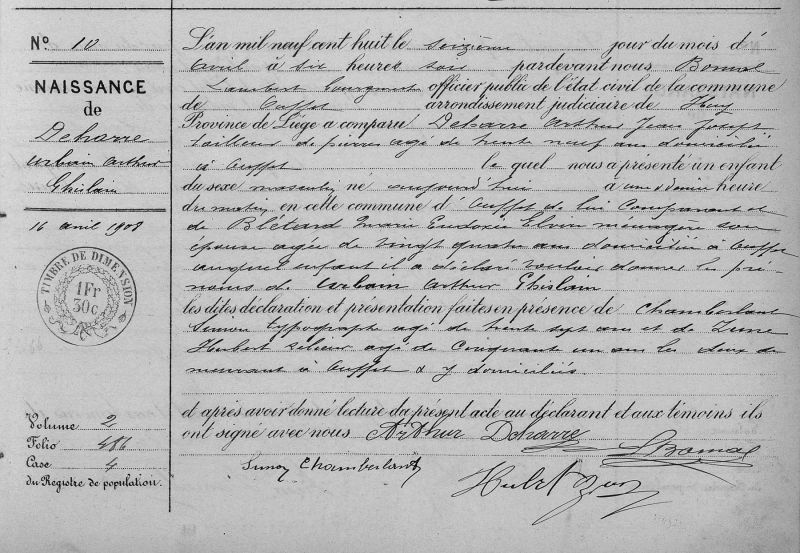 N° 10
NAISSANCE
de
Deharre
Urbain Arthur
Ghislain
16 avril 1908
TIMBRE DE DIMENSION
1 Fr
30 c
Volume 2
Folio 486
Case 4
du Registre de population.
L'an mil neuf cent huit le seizième jour du mois d'
avril à six heures soir pardevant nous Bonmal
Lambert bourgmestre officier public de l'état civil de la commune
de Ouffet arrondissement judiciaire de Huy
Province de Liège a comparu Deharre Arthur Jean Joseph
tailleur de pierres agé de trente neuf ans domicilié
à Ouffet le quel nous a présenté un enfant
du sexe masculin né aujourd'hui à une & demie heure
du matin en cette commune d'Ouffet de lui Comparant et
de Blétard Marie Eudoxie Elvire ménagère son
épouse agée de vingt quatre ans domiciliée à Ouffet
auquel enfant il a déclaré vouloir donner les pré-
noms de Urbain Arthur Ghislain
les dites déclaration et présentation faites en présence de Chamberland
Simon typographe agé de trente sept ans et de
Hubert sellier agé de Cinquante un ans les deux de
meurant à Ouffet & y domiciliés
et après avoir donné lecture du présent acte au déclarant et aux témoins ils
ont signé avec nous Arthur Deharre
LBonmal
Simon Chamberland
Hubert